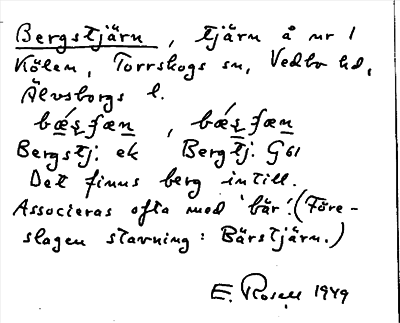 Bergstjärn, tjärn å nr 1
Kölen, Torrskogs sn, Vedbo hd,
Älvsborgs l.
bǽʂʃæn, bǽʂʃæn
Bergstj. ek Bergtj. G 61
Det finns berg intill.
Associeras ofta med 'bär'. (Före-
slagen stavning: Bärstjärn.)
E. Rosell 1949